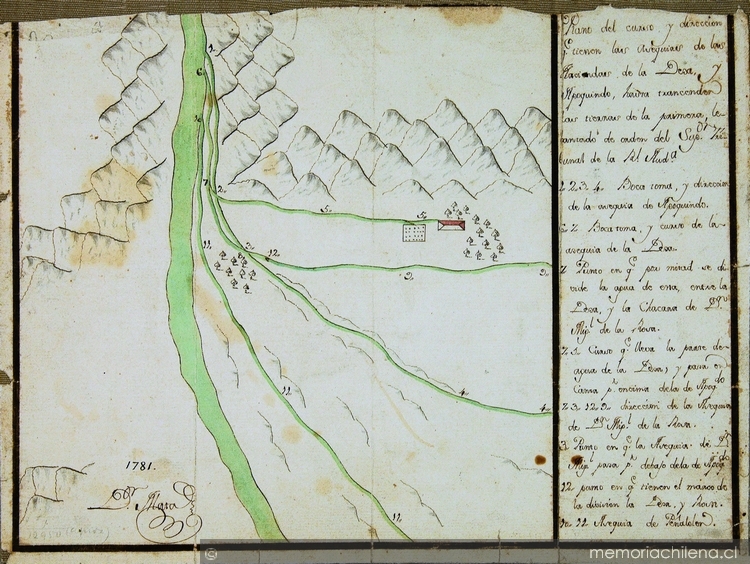 Plano del curso, y direccion
q.e tienen las Aseguias de las
Haciendas de la Desa, y
Apoquindo, hacia
las tierras de la primera, le-
antado de orden del Sup.or Tri-
bunal de la R.l Aud.a
2 3 4. Boca toma, y direccion
de la aseguia de Apoquindo.
6 7 Boca toma, y curso de la
aseguia de la Desa.
7 Punto en q.e por mitad se di-
vide la agua de esta, entre la
Desa, y la Chacara de D.n
Mig.l de la Rova.
7 5 Curso q.e lleva la parte de
agua de la Desa, y pasa en
Canoa p.r encima de la de Apoq.do
7 3 12 2. direccion de la Aseguia
de D.n Mig.l de la Rova.
3 Punto en q.e la Aseguia de D.n
Mig.l pasa p.r debajo de la de Apoq.do
12 punto en q.e tienen el marco de
la division la Desa, y Rova.
10 11 Aseguia de Peñalolen.
1
6
10
7
2
5
5
11
3
12
2
2
4
4
11
11
1781.
memoriachilena.cl
©